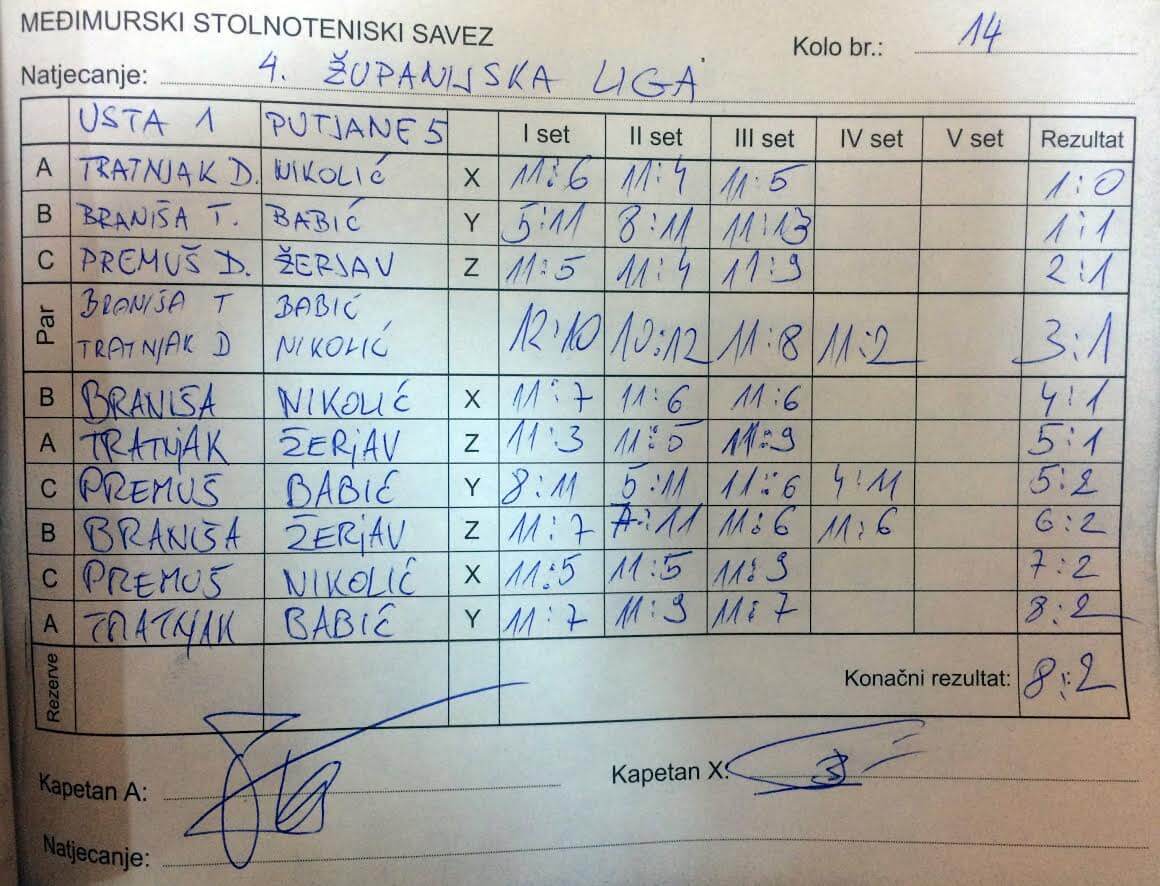 MEĐIMURSKI STOLNOTENISKI SAVEZ
Kolo br.: 14
Natjecanje: 4. ŽUPANIJSKA LIGA
USTA 1 PUTJANE 5 I set II set III set IV set V set Rezultat
A TRATNJAK D. NIKOLIĆ X 11:6 11:4 11:5 1:0
B BRANIŠA T. BABIĆ Y 5:11 8:11 11:13 1:1
C PREMUŠ D. ŽERJAV Z 11:5 11:4 11:9 2:1
Par BRANIŠA T BABIĆ
TRATNJAK D NIKOLIĆ 12:10 10:12 11:8 11:2 3:1
B BRANIŠA NIKOLIĆ X 11:7 11:6 11:6 4:1
A TRATNJAK ŽERJAV Z 11:3 11:5 11:9 5:1
C PREMUŠ BABIĆ Y 8:11 5:11 11:6 4:11 5:2
B BRANIŠA ŽERJAV Z 11:7 7:11 11:6 11:6 6:2
C PREMUŠ NIKOLIĆ X 11:5 11:5 11:9 7:2
A TRATNJAK BABIĆ Y 11:7 11:9 11:7 8:2
Rezerve Konačni rezultat: 8:2
Kapetan A: Kapetan X:
Natjecanje: